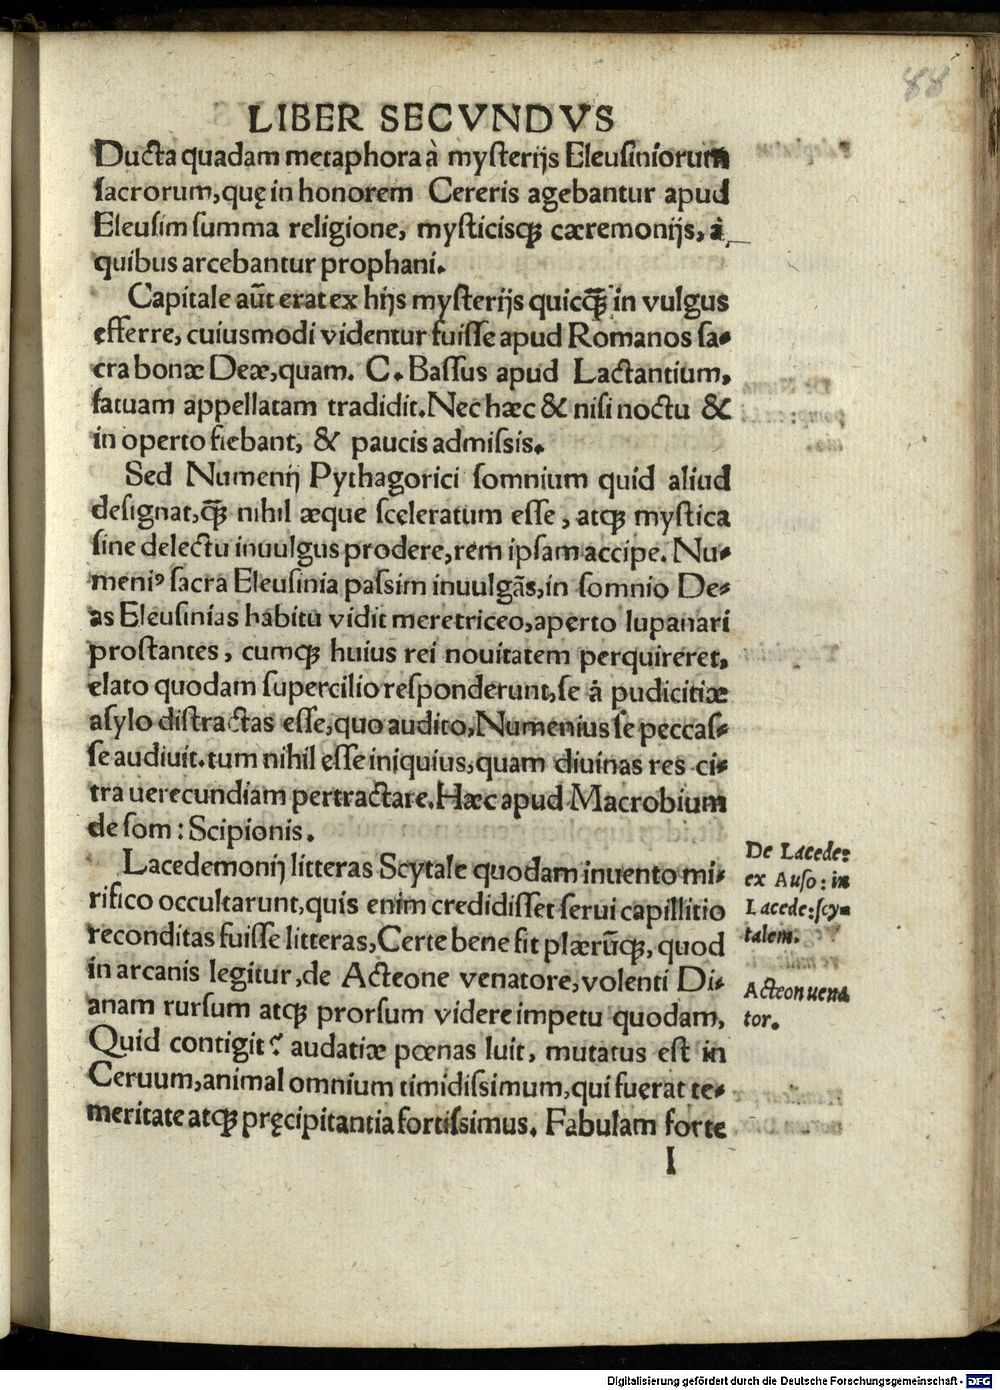 88
LIBER SECVNDVS
Ducta quadam metaphora à mysterijs Eleusiniorum
sacrorum, quę in honorem Cereris agebantur apud
Eleusim summa religione, mysticisqꝫ cæremonijs, à
quibus arcebantur prophani.
Capitale aūt erat ex hijs mysterijs quicq̄ꝫ in vulgus
efferre, cuiusmodi videntur fuisse apud Romanos sa-
cra bonæ Deæ, quam. C. Bassus apud Lactantium,
fatuam appellatam tradidit. Nec hæc & nisi noctu &
in operto fiebant, & paucis admissis.
Sed Numenij Pythagorici somnium quid aliud
designat, q̄ꝫ nihil æque sceleratum esse, atqꝫ mystica
sine delectu inuulgus prodere, rem ipsam accipe. Nu-
meniꝰ sacra Eleusinia passim inuulgãs, in somnio De-
as Eleusinias habitu vidit meretriceo, aperto lupanari
prostantes, cumqꝫ huius rei nouitatem perquireret,
elato quodam supercilio responderunt, se á pudicitiæ
asylo distractas esse, quo audito, Numenius se peccas-
se audiuit. tum nihil esse iniquius, quam diuinas res ci-
tra uerecundiam pertractare. Hæc apud Macrobium
de som: Scipionis.
Lacedemonij litteras Scytale quodam inuento mi-
rifico occultarunt, quis enim credidisset serui capillitio
reconditas fuisse litteras, Certe bene fit plærūqꝫ, quod
in arcanis legitur, de Acteone venatore, volenti Di-
anam rursum atqꝫ prorsum videre impetu quodam,
Quid contigit? audatiæ pœnas luit, mutatus est in
Ceruum, animal omnium timidissimum, qui fuerat te-
meritate atqꝫ pręcipitantia fortissimus. Fabulam forte
I
De Lacede:
ex Auso: in
Lacede: scy-
talem.
Acteon uena
tor.
Digitalisierung gefördert durch die Deutsche Forschungsgemeinschaft - DFG